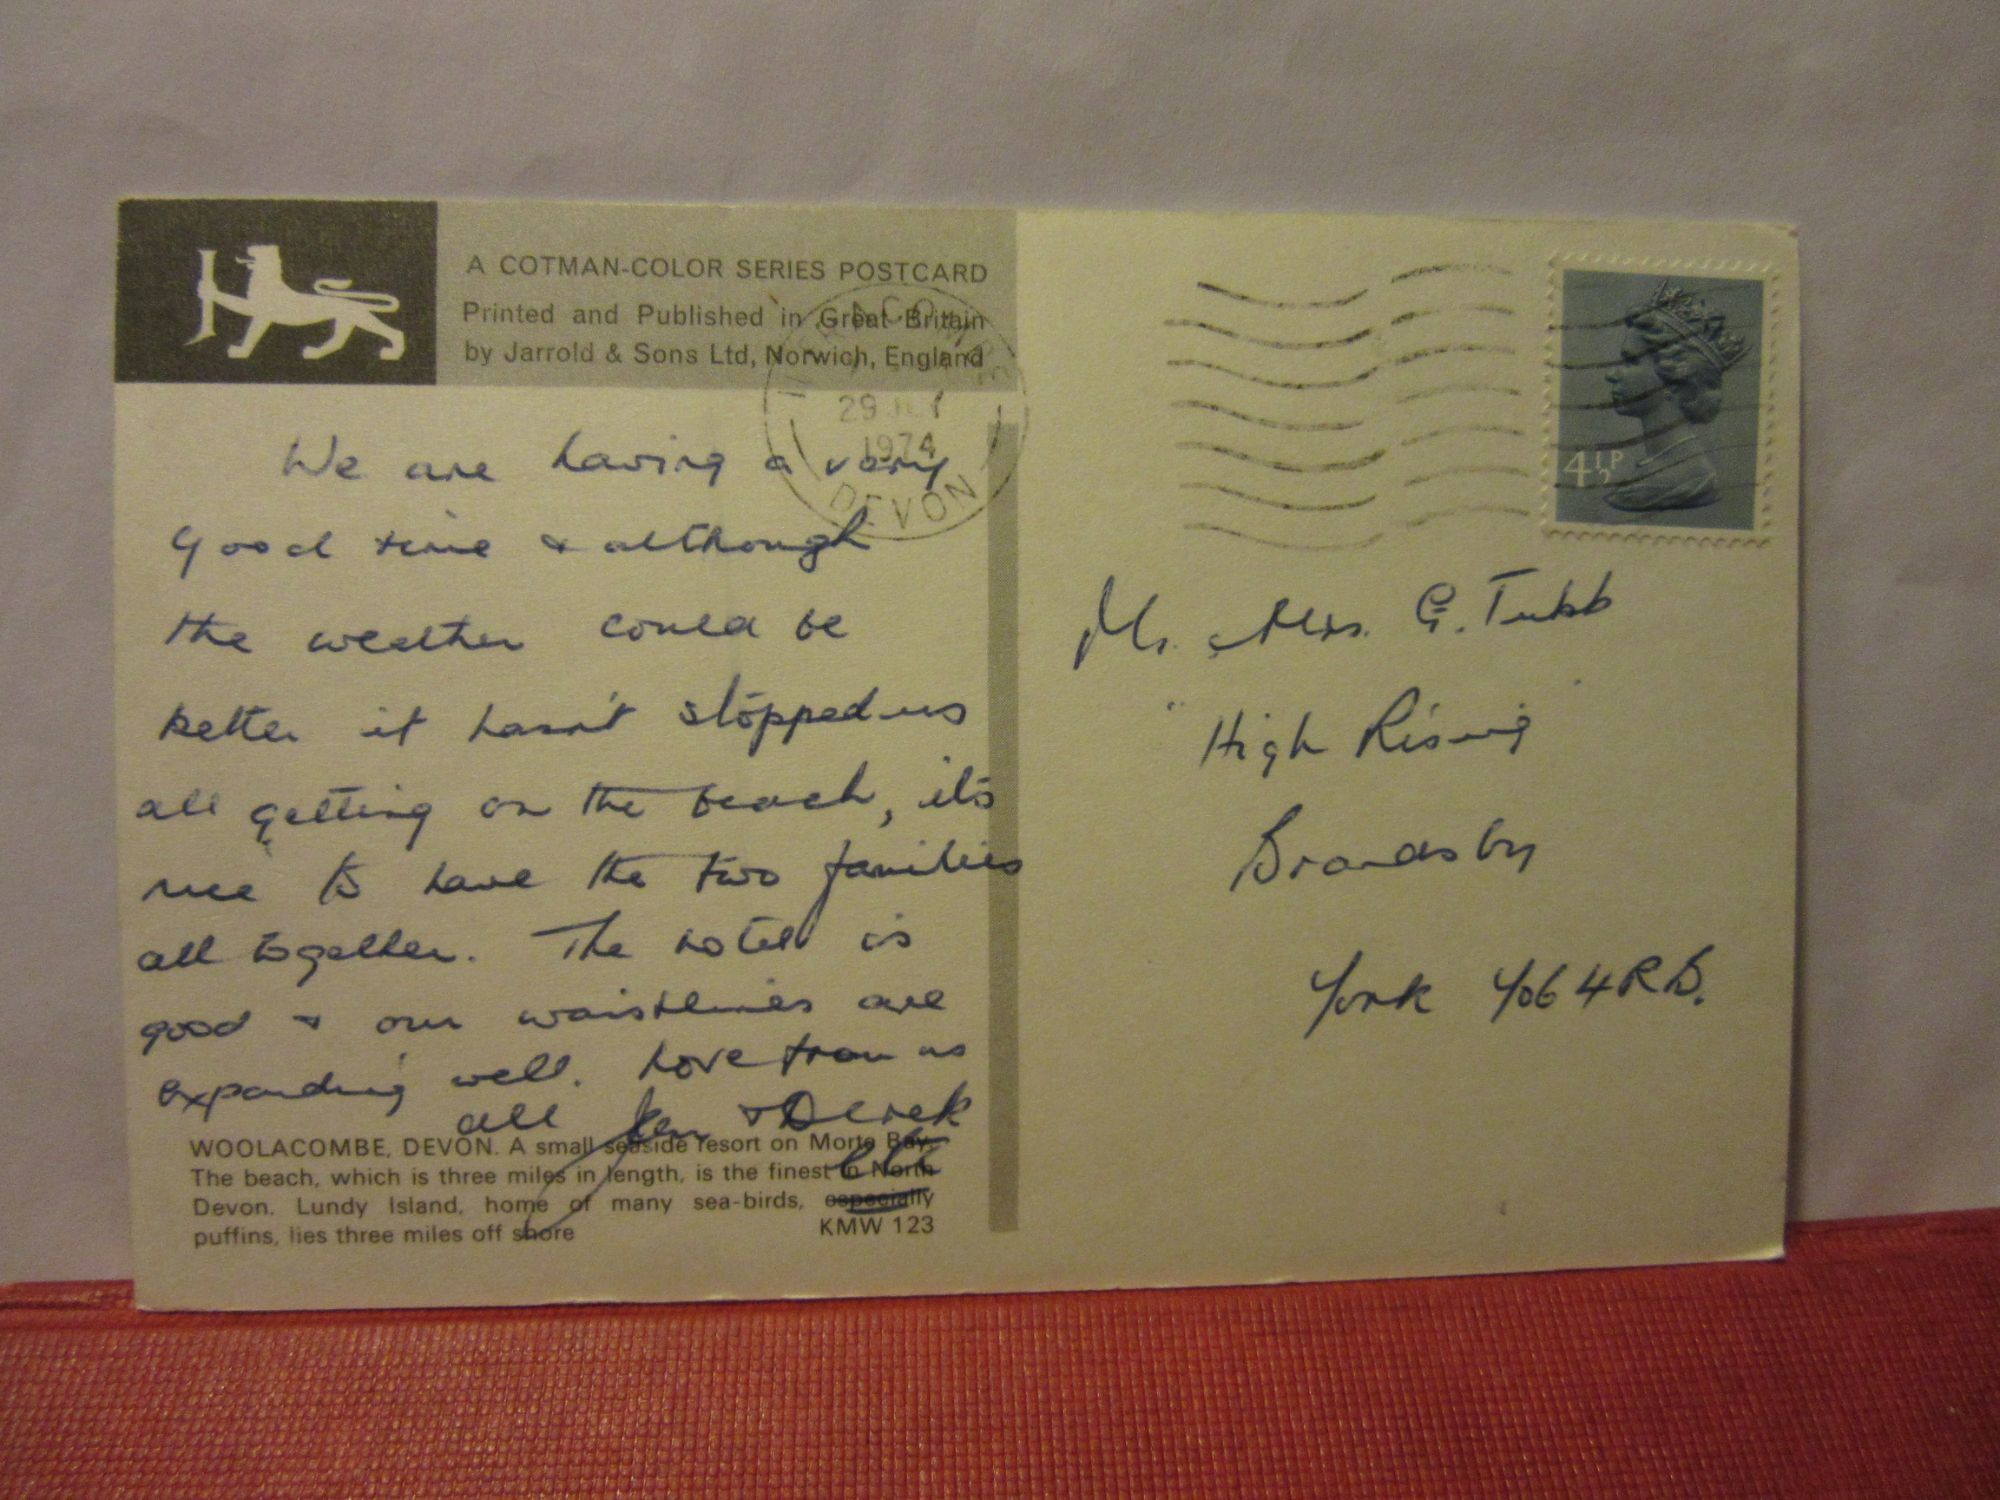 A COTMAN-COLOR SERIES POSTCARD
Printed and Published in Great Britain
by Jarrold & Sons Ltd, Norwich, England
29
1974
DEVON
4½P
We are having a very
good time & although
the weather could be
better it hasn't stopped us
all getting on the beach, it's
nice to have the two families
all together. The hotel is
good & our waistlines are
expanding well. Love from us
all Ken & Derek
etc
WOOLACOMBE, DEVON. A small seaside resort on Morte Bay.
The beach, which is three miles in length, is the finest in North
Devon. Lundy Island, home of many sea-birds, especially
puffins, lies three miles off shore
KMW 123
Mr. & Mrs. G. Tubb
"High Rising"
Brandsby
York YO6 4RB.